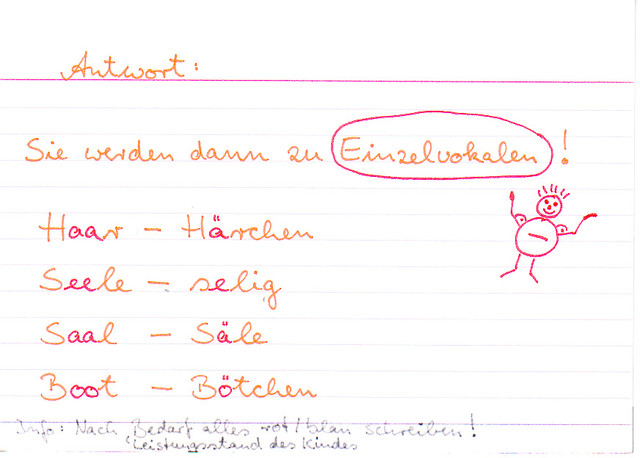 Antwort:
Sie werden dann zu Einzelvokalen!
Haar – Härchen
Seele – selig
Saal – Säle
Boot – Bötchen
Info: Nach Bedarf alles rot/blau schreiben!
Leistungsstand des Kindes